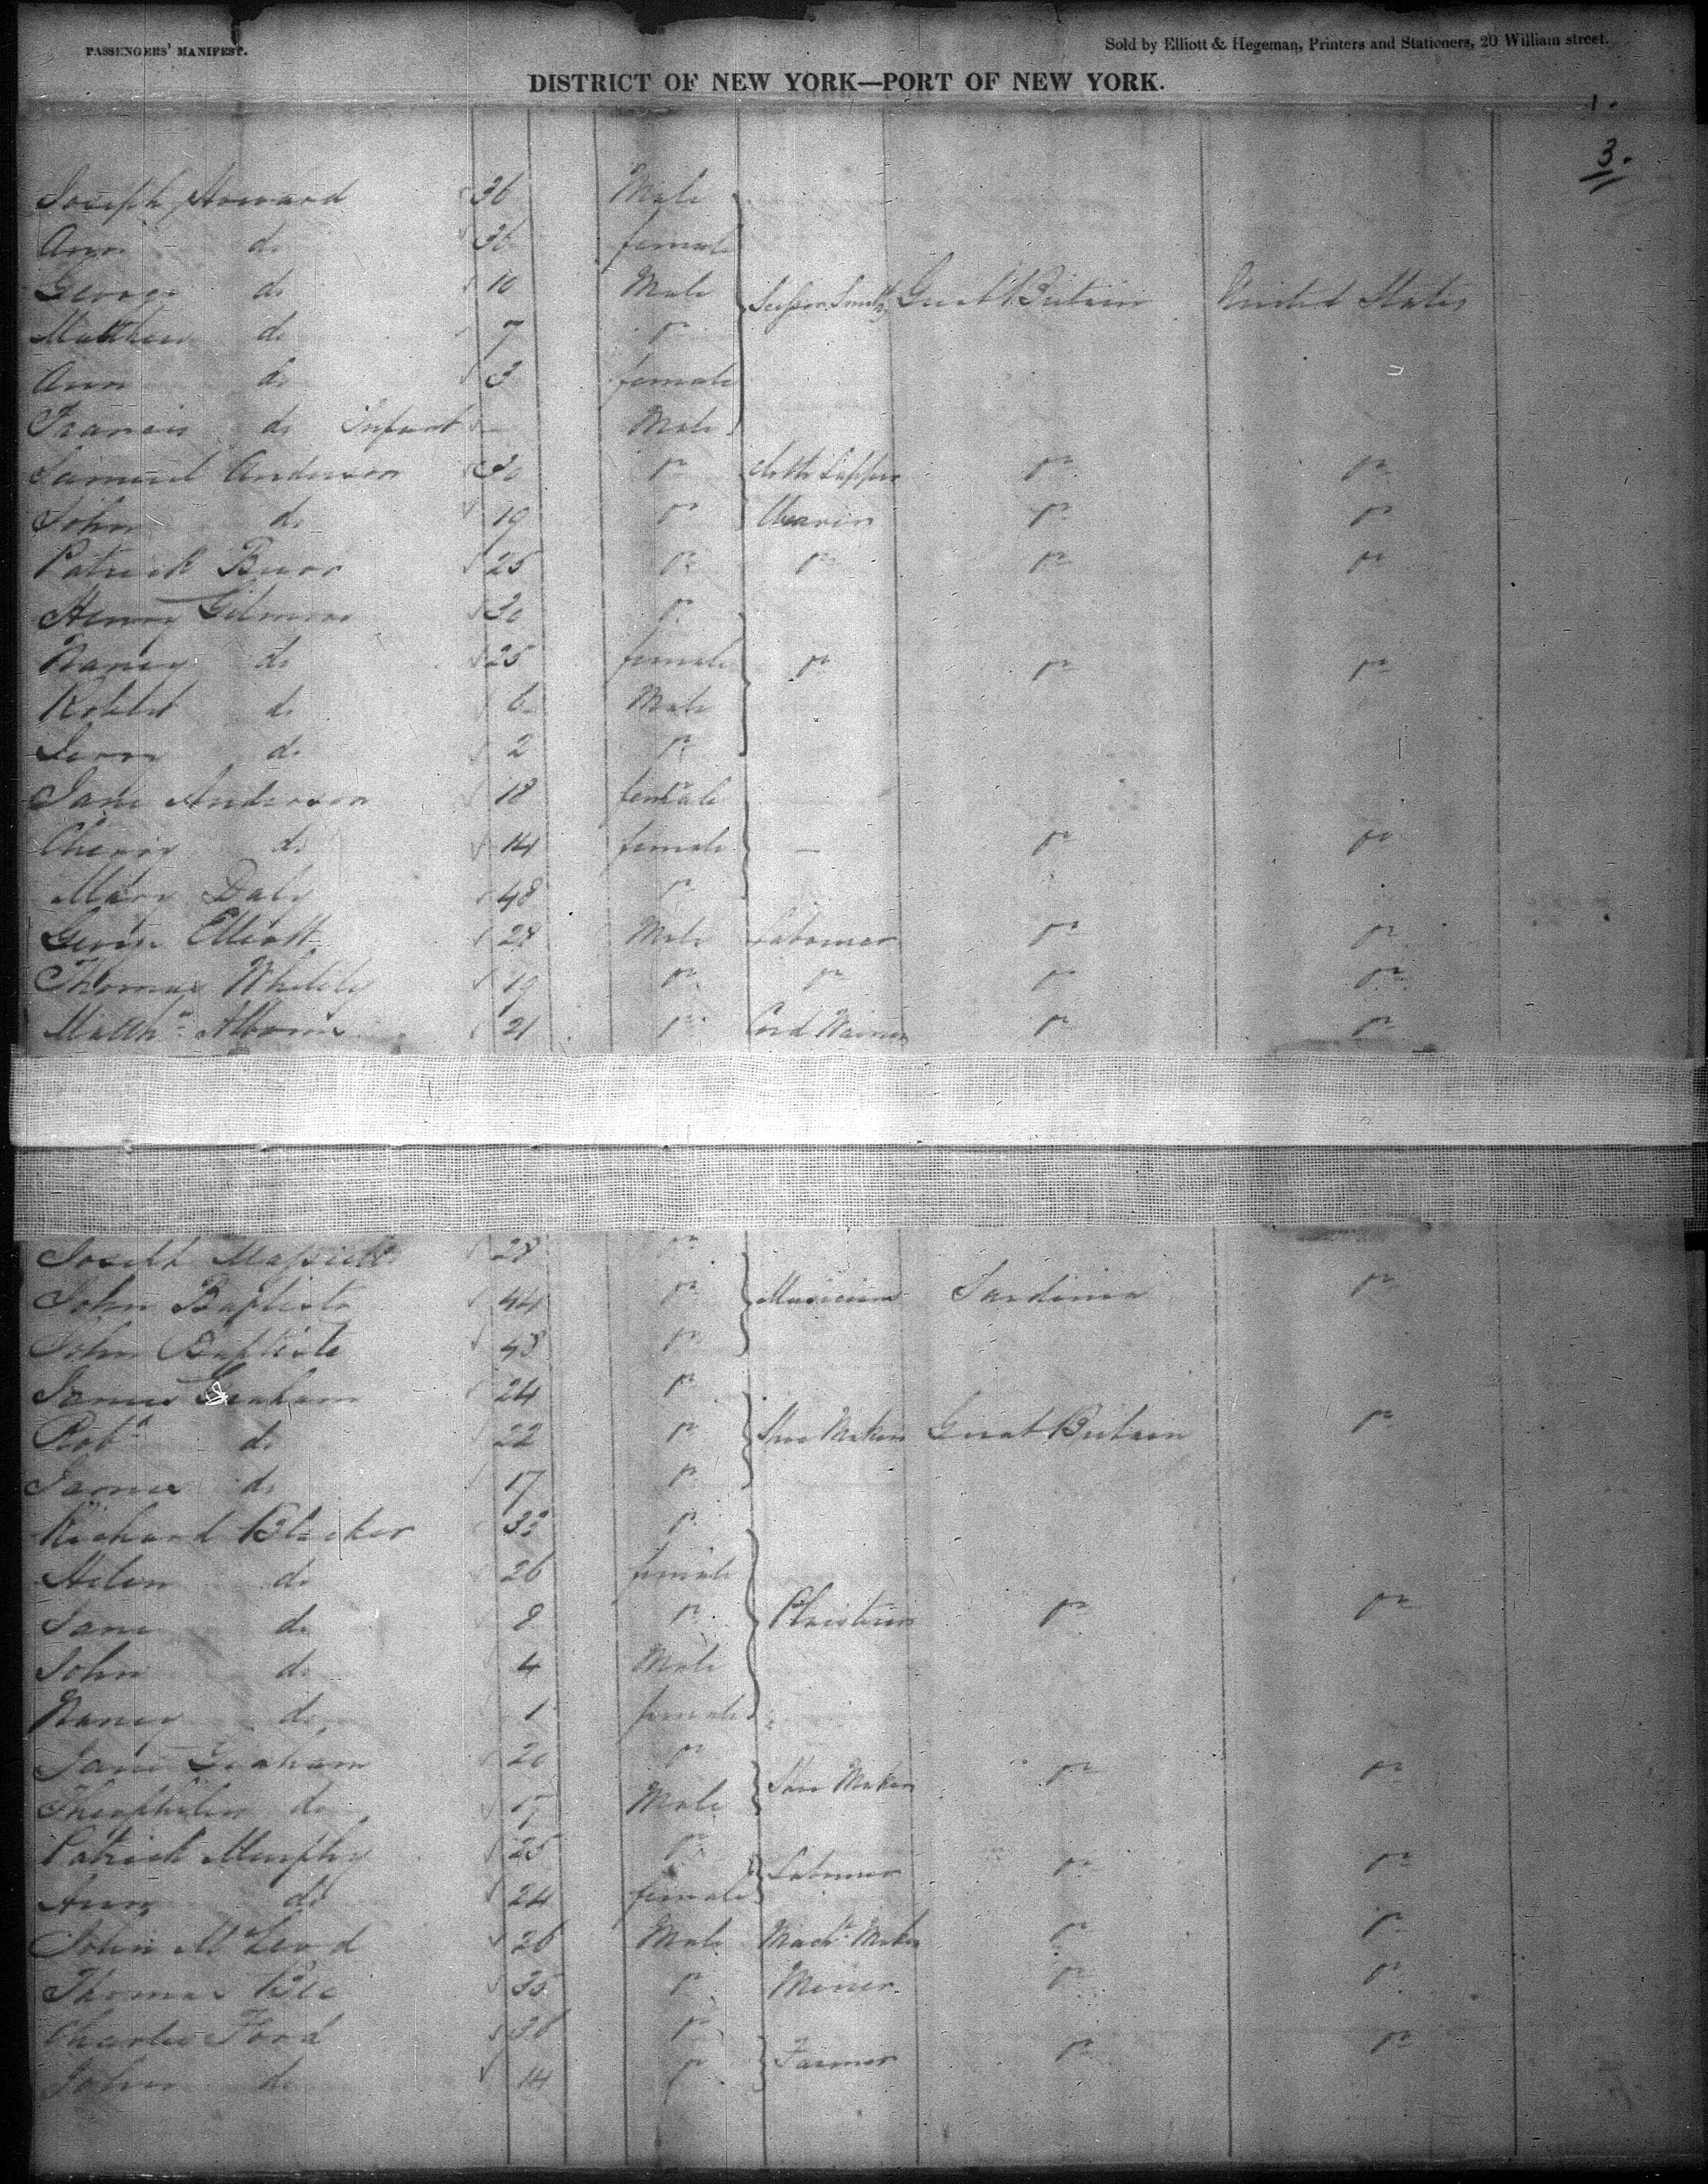 PASSENGERS' MANIFEST.
Sold by Elliott & Hegeman, Printers and Stationers, 20 William street.
DISTRICT OF NEW YORK—PORT OF NEW YORK.
1.
3.
Joseph Howard 36 Male
Ann do 36 female
George do 10 Male Great Britain United States
Matthew do 7 Do
Ann do 3 female
Francis do Infant Male
Samuel Anderson 30 Do Cloth Lapper Do Do
John do 19 Do Weaver Do Do
Patrick 25 Do Do Do Do
Henry Gilmore 30 Do
Nancy do 25 female Do Do Do
Robert do 6 Male
do 2 Do
Jane Anderson 18 female
do 14 female — Do Do
Mary Daly 48 Do
George Elliott 28 Male Labourer Do Do
Thomas 19 Do Do Do Do
Matth 21 Do Cord Wainer Do Do
Joseph 28 Do
John Baptiste 44 Do Musicians Sardinia Do
John Baptiste 48 Do
James Graham 24 Do
Robt do 22 Do Shoe Makers Great Britain Do
James do 17 Do
Richard Blacker Do
Helen do 26 female
Jane do 8 Do Plaisterer Do Do
John do 4 Male
Nancy do 1 female
Jane Graham 20 Do
Theophilus do Male Shoe Maker Do Do
Patrick Murphy 25 Do
Ann do 24 female Labourer Do Do
John McLeod 26 Male Mache Maker Do Do
Thomas 35 Do Miner Do Do
Charles Ford 36 Do
John do 14 Do Farmer Do Do